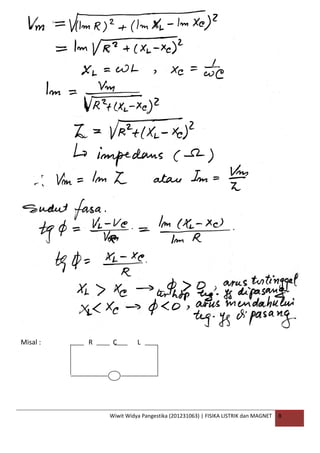 Vm = √(Im R)² + (Im XL - Im Xc)²
= Im √R² + (XL - Xc)²
XL = ωL , Xc = 1/ωC
Im = Vm / √R² + (XL - Xc)²
Z = √R² + (XL - Xc)²
↳ impedans (Ω)
∴ Vm = Im Z atau Im = Vm/Z
Sudut fasa.
tg ϕ = VL - Vc / VR = Im (XL - Xc) / Im R
tg ϕ = XL - Xc / R
XL > Xc → ϕ > 0, arus tertinggal
terhdp teg. yg dipasang
XL < Xc → ϕ < 0, arus mendahului
teg. yg di pasang
Misal : R C L
Wiwit Widya Pangestika (201231063) | FISIKA LISTRIK dan MAGNET